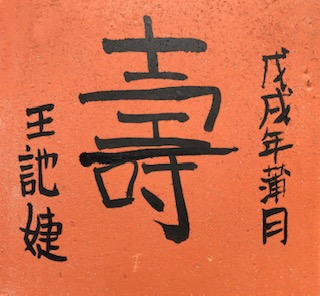 戊戌年蒲月
壽
王訑婕